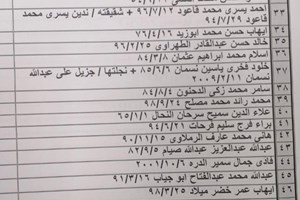 ٣٣ احمد يسرى محمد قاعود ٩٦/٧/١٢ + شقيقته / ندين يسرى محمد
قاعود ٩٤/٧/٢٩
٣٤ ايهاب حسن محمد ابوزيد ٧٦/٤/١٦
٣٥ خالد حسن عبدالقادر الطهراوى ٩٦/٢/٢٥
٣٦ اسلام محمد ابراهيم عثمان ٨٤/٣/٨
٣٧ خلود فخرى ياسين نسمان ٨٥/٦/٦ + نجلتها / جزيل على عبدالله
نسمان ٢٠٠٩/٢/٢١
٣٨ سامر محمد زكى الدحنون ٨٤/٨/٤
٣٩ محمد رائد محمد مصلح ٩٨/٩/٢٤
٤٠ علاء الدين سميح سرحان النحال ٦٥/١/١
٤١ براء فرج سليم فرحات ٩٤/٦/٢١
٤٢ هانى محمد عارف الرملاوى ٩٠/١١/١٥
٤٣ عبدالله عبدالعزيز عبدالله صيام ٨٢/٩/٥
٤٤ فادى جمال سمير الدره ٢٠٠١/١٠/٦
٤٥ عبدالله محمد عبدالفتاح ابو جياب ٩١/٣/١٦
٤٦ ايهاب عمر خضر ميلاد ٩٨/٣/٢٥